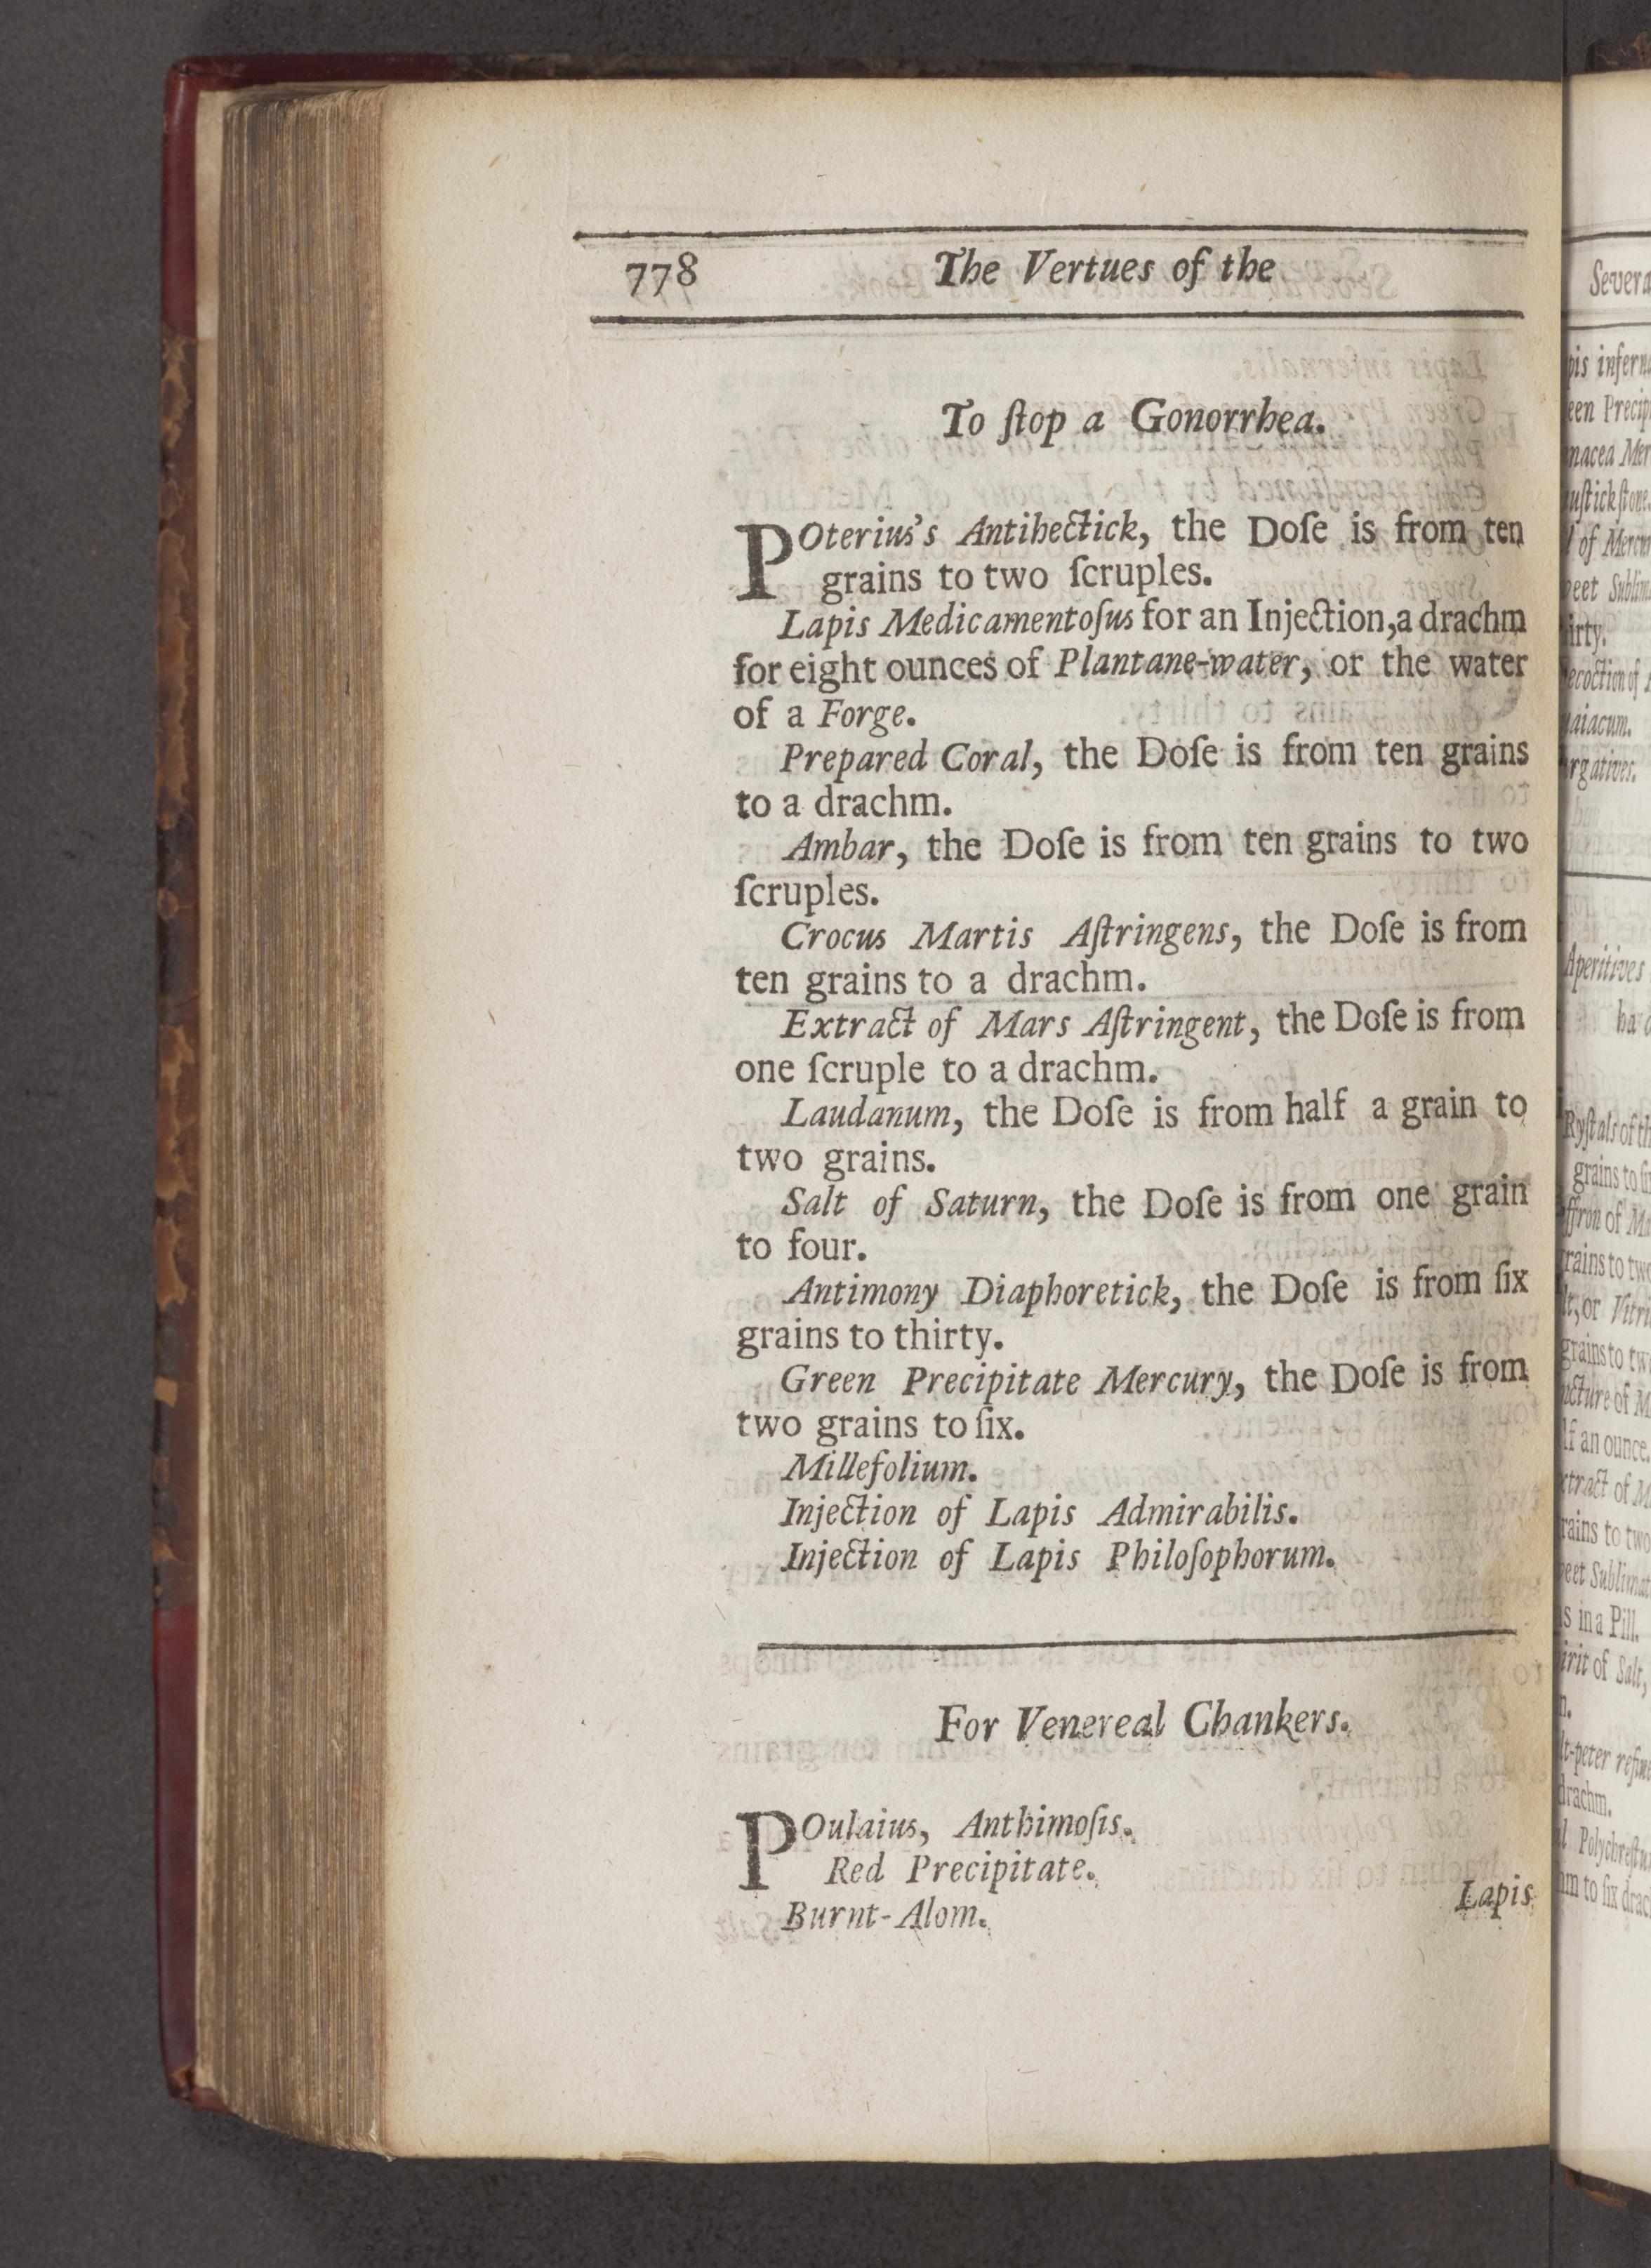 778 The Vertues of the
To ſtop a Gonorrhea.
POterius's Antihectick, the Doſe is from ten
grains to two ſcruples.
Lapis Medicamentoſus for an Injection, a drachm
for eight ounces of Plantane-water, or the water
of a Forge.
Prepared Coral, the Doſe is from ten grains
to a drachm.
Ambar, the Doſe is from ten grains to two
ſcruples.
Crocus Martis Aſtringens, the Doſe is from
ten grains to a drachm.
Extract of Mars Aſtringent, the Doſe is from
one ſcruple to a drachm.
Laudanum, the Doſe is from half a grain to
two grains.
Salt of Saturn, the Doſe is from one grain
to four.
Antimony Diaphoretick, the Doſe is from ſix
grains to thirty.
Green Precipitate Mercury, the Doſe is from
two grains to ſix.
Millefolium.
Injection of Lapis Admirabilis.
Injection of Lapis Philoſophorum.
For Venereal Chankers.
POulaius, Anthimoſis.
Red Precipitate.
Burnt-Alom.
Lapis
of Mercu
Aperitives
grains to ſix
or Vitri
grains to tw
an ounce.
of M
to two
in a Pill.
of Salt,
drachm.
to ſix